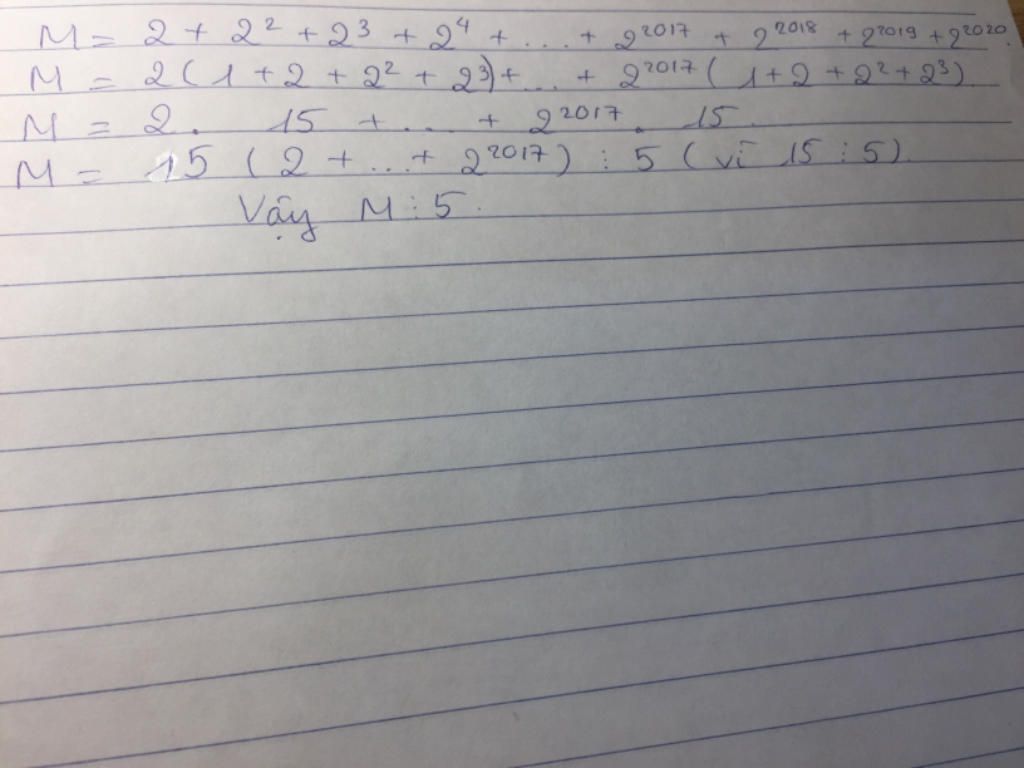 M = 2 + 2² + 2³ + 2⁴ + ... + 2²⁰¹⁷ + 2²⁰¹⁸ + 2²⁰¹⁹ + 2²⁰²⁰.
M = 2 ( 1 + 2 + 2² + 2³) + ... + 2²⁰¹⁷ ( 1 + 2 + 2² + 2³)
M = 2 . 15 + ... + 2²⁰¹⁷ . 15
M = 15 ( 2 + ... + 2²⁰¹⁷) ⋮ 5 ( vì 15 ⋮ 5).
Vậy M ⋮ 5.